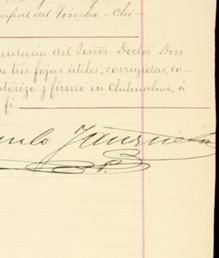 del Timbre - Chi-
mentaria del Señor Doctor Don
de tres fojas útiles, corregidas, co-
autorizo y firmo en Chihuahua, á
fi